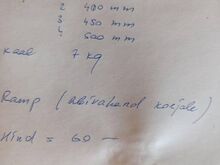 2 400 mm
3 450 mm
4 500 mm
kaal 7 kg
Ramp (abivahend korjale)
Hind = 60 —